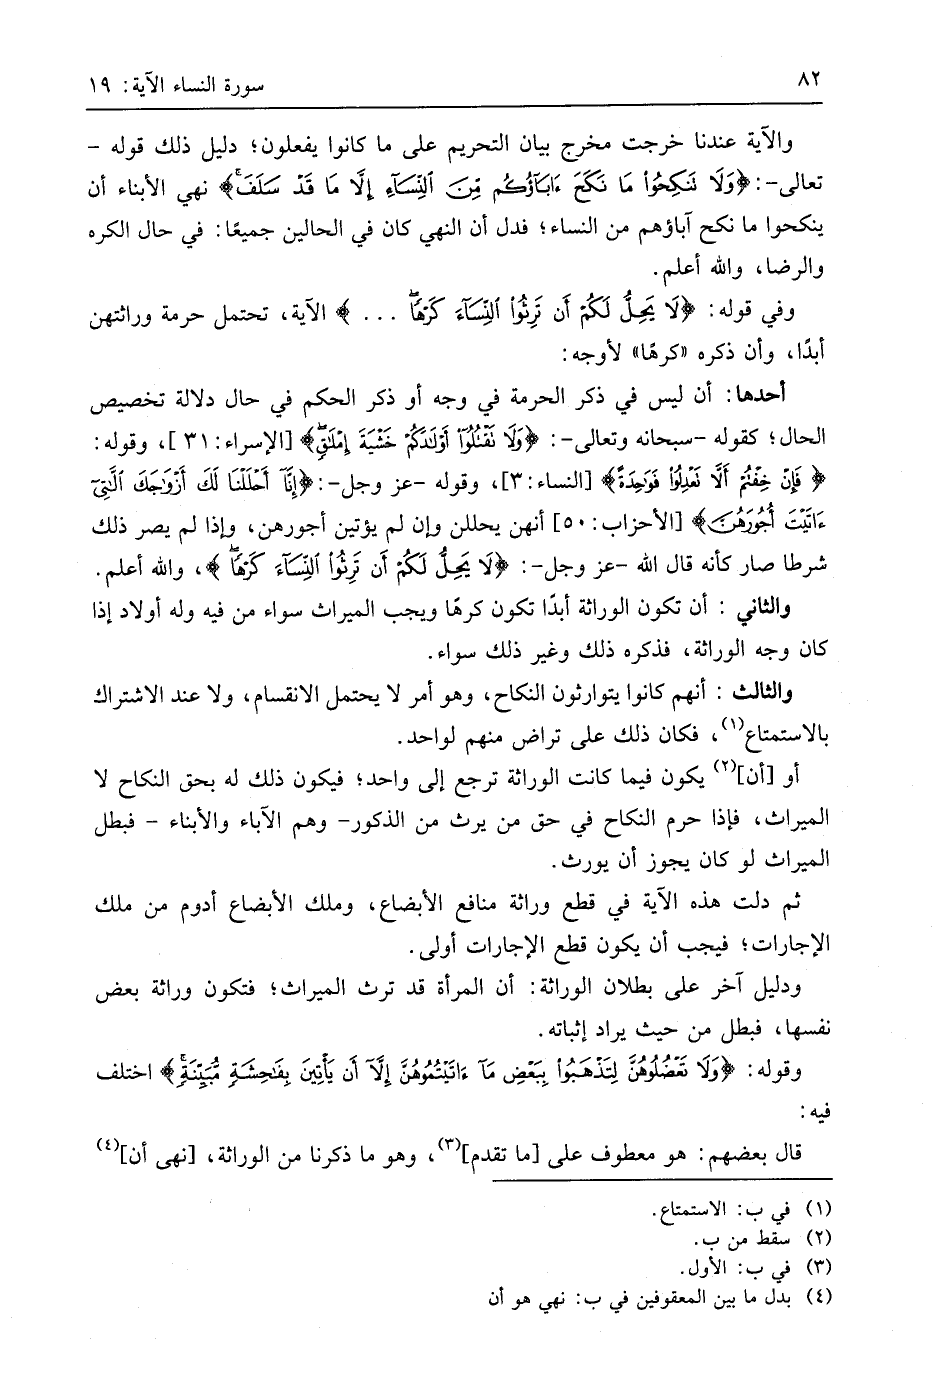 ٨٢
سورة النساء الآية: ١٩
والآية عندنا خرجت مخرج بيان التحريم على ما كانوا يفعلون؛ دليل ذلك قوله -
تعالى-: ﴿وَلَا تَنكِحُوا۟ مَا نَكَحَ ءَابَآؤُكُم مِّنَ ٱلنِّسَآءِ إِلَّا مَا قَدْ سَلَفَۚ﴾ نهي الأبناء أن
ينكحوا ما نكح آباؤهم من النساء؛ فدل أن النهي كان في الحالين جميعًا: في حال الكره
والرضا، والله أعلم.
وفي قوله: ﴿لَا يَحِلُّ لَكُمْ أَن تَرِثُوا۟ ٱلنِّسَآءَ كَرْهًاۖ ... ﴾ الآية، تحتمل حرمة وراثتهن
أبدًا، وأن ذكره «كرهًا» لأوجه:
أحدها: أن ليس في ذكر الحرمة في وجه أو ذكر الحكم في حال دلالة تخصيص
الحال؛ كقوله -سبحانه وتعالى-: ﴿وَلَا تَقْتُلُوٓا۟ أَوْلَٰدَكُمْ خَشْيَةَ إِمْلَٰقٍۖ﴾ [الإسراء: ٣١]، وقوله:
﴿ فَإِنْ خِفْتُمْ أَلَّا تَعْدِلُوا۟ فَوَٰحِدَةً﴾ [النساء: ٣]، وقوله -عز وجل-: ﴿إِنَّآ أَحْلَلْنَا لَكَ أَزْوَٰجَكَ ٱلَّٰتِىٓ
ءَاتَيْتَ أُجُورَهُنَّ﴾ [الأحزاب: ٥٠] أنهن يحللن وإن لم يؤتين أجورهن، وإذا لم يصر ذلك
شرطا صار كأنه قال الله -عز وجل-: ﴿لَا يَحِلُّ لَكُمْ أَن تَرِثُوا۟ ٱلنِّسَآءَ كَرْهًاۖ ﴾، والله أعلم.
والثاني : أن تكون الوراثة أبدًا تكون كرهًا ويجب الميراث سواء من فيه وله أولاد إذا
كان وجه الوراثة، فذكره ذلك وغير ذلك سواء.
والثالث : أنهم كانوا يتوارثون النكاح، وهو أمر لا يحتمل الانقسام، ولا عند الاشتراك
بالاستمتاع(١)، فكان ذلك على تراض منهم لواحد.
أو [أن](٢) يكون فيما كانت الوراثة ترجع إلى واحد؛ فيكون ذلك له بحق النكاح لا
الميراث، فإذا حرم النكاح في حق من يرث من الذكور- وهم الآباء والأبناء - فبطل
الميراث لو كان يجوز أن يورث.
ثم دلت هذه الآية في قطع وراثة منافع الأبضاع، وملك الأبضاع أدوم من ملك
الإجارات؛ فيجب أن يكون قطع الإجارات أولى.
ودليل آخر على بطلان الوراثة: أن المرأة قد ترث الميراث؛ فتكون وراثة بعض
نفسها، فبطل من حيث يراد إثباته.
وقوله: ﴿وَلَا تَعْضُلُوهُنَّ لِتَذْهَبُوا۟ بِبَعْضِ مَآ ءَاتَيْتُمُوهُنَّ إِلَّآ أَن يَأْتِينَ بِفَٰحِشَةٍ مُّبَيِّنَةٍۚ﴾ اختلف
فيه:
قال بعضهم: هو معطوف على [ما تقدم](٣)، وهو ما ذكرنا من الوراثة، [نهى أن](٤)
(١) في ب: الاستمتاع.
(٢) سقط من ب.
(٣) في ب: الأول.
(٤) بدل ما بين المعقوفين في ب: نهي هو أن